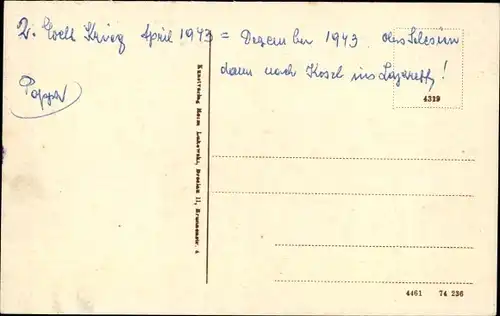 2. Welt Krieg April 1943 = Dezember 1943 Oberschlesien
dann nach Kosel ins Lazarett!
Pappa
4329
Kunstverlag Herm. Lukowski, Breslau II, Brunnenstr. 4
4461 74 236